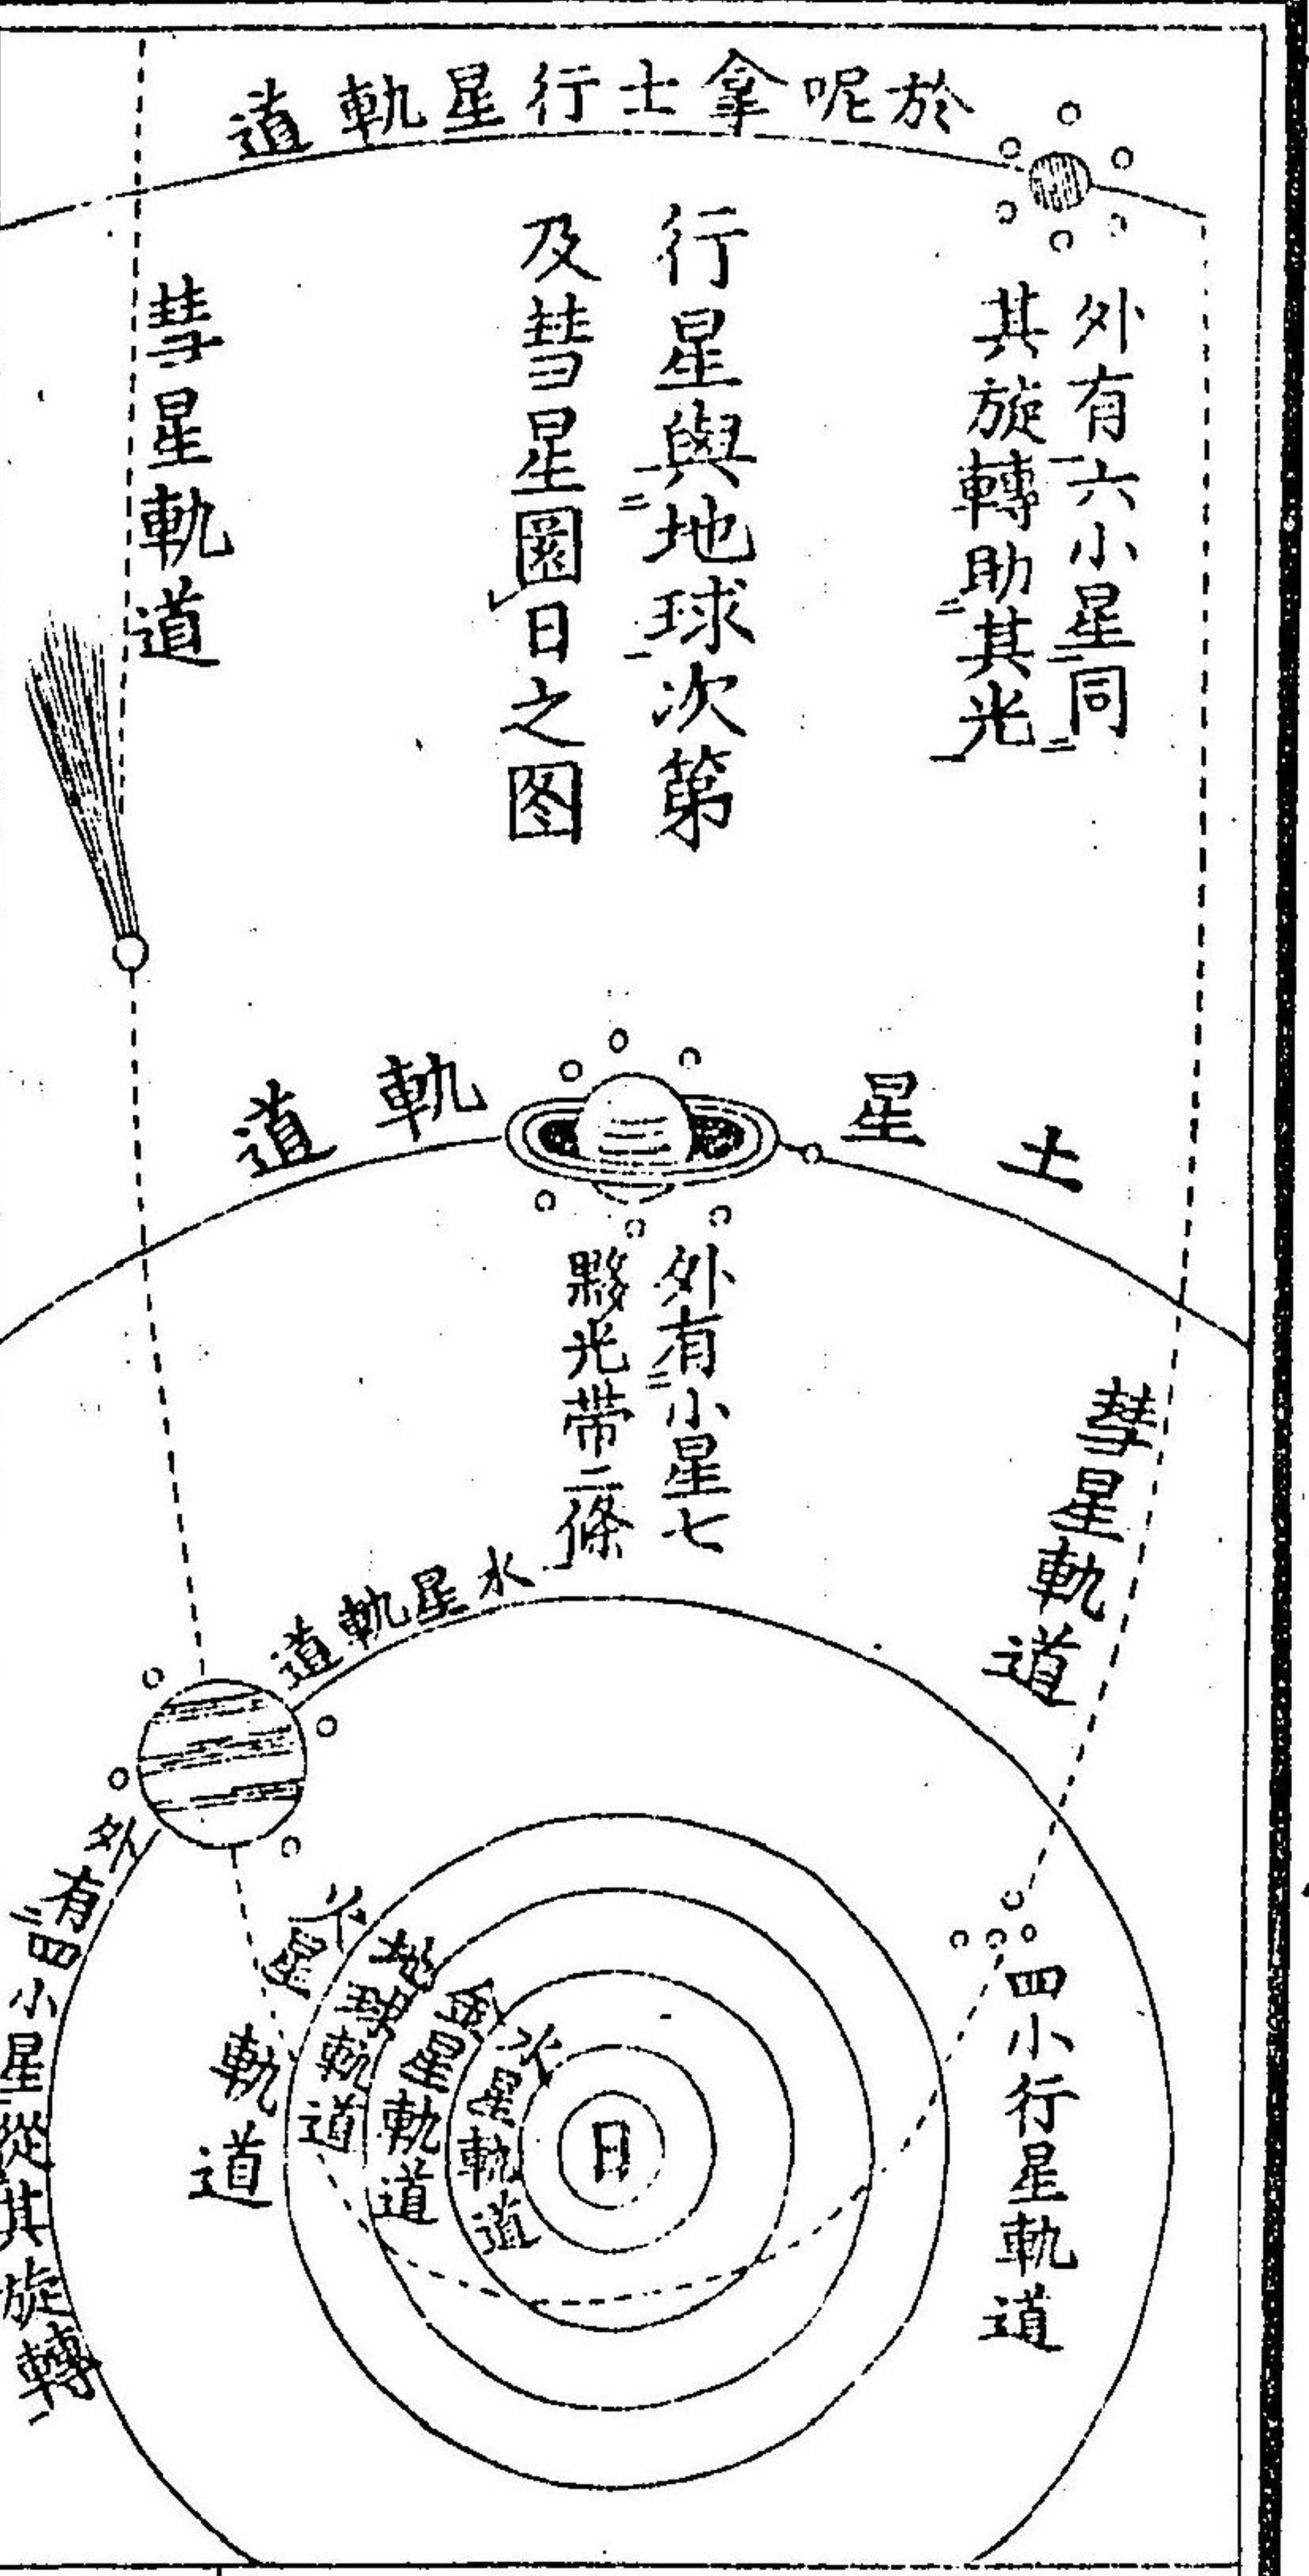 於呢拿士行星軌道
外有六小星同
其旋轉助其光
行星與地球次第
及彗星圜日之图
彗星軌道
土星軌道
外有小星七
夥光帶二條
彗星軌道
水星軌道
外有四小星從其旋轉
四小行星軌道
火星軌道
地球軌道
金星軌道
水星軌道
日